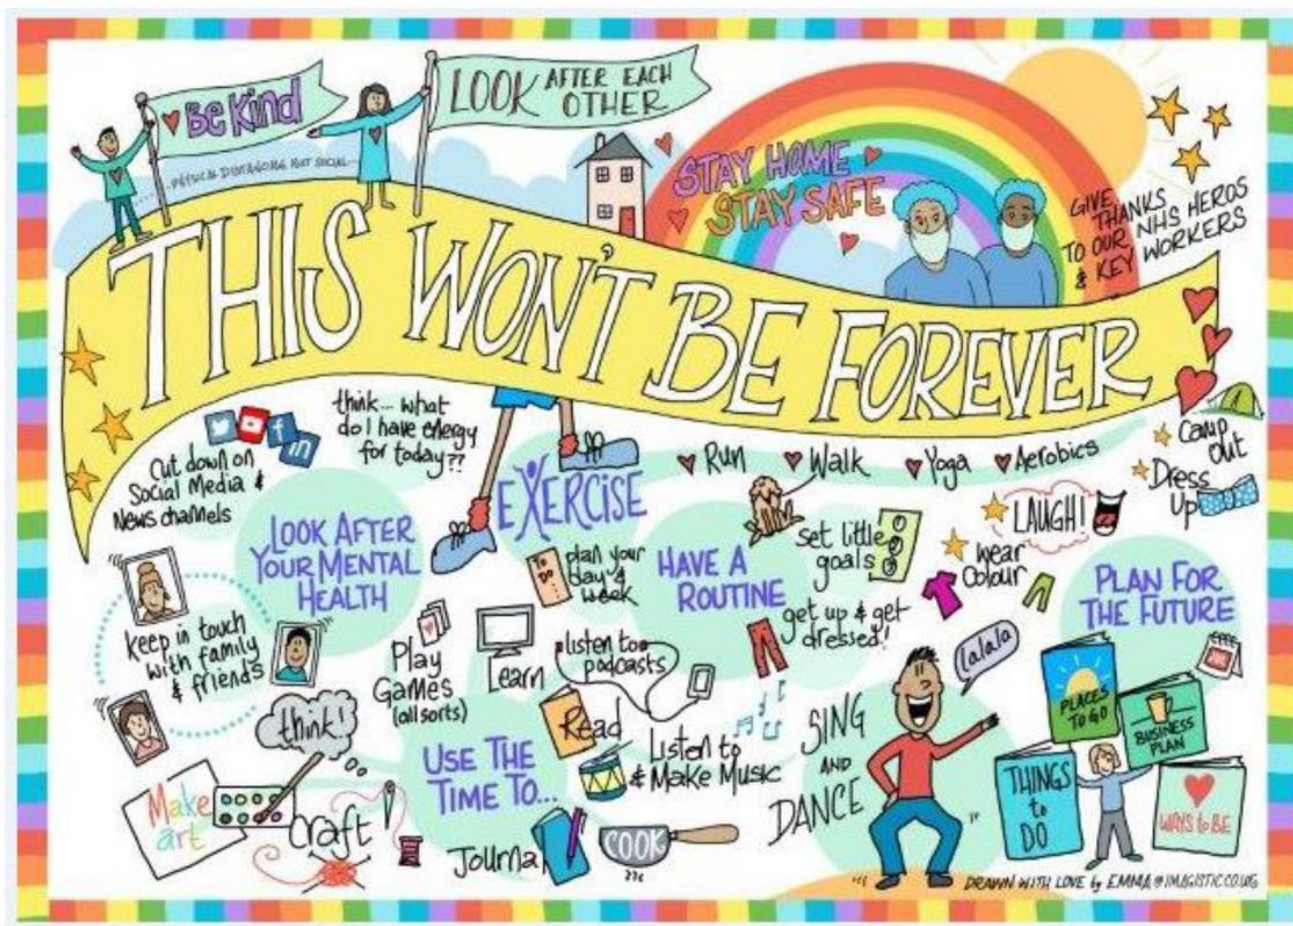 Be Kind
LOOK AFTER EACH
OTHER
PHYSICAL DISTANCING NOT SOCIAL
STAY HOME
STAY SAFE
GIVE
THANKS
TO OUR NHS HEROS
& KEY WORKERS
THIS WON'T BE FOREVER
think... what
do I have energy
for today??
Cut down on
Social Media &
News channels
LOOK AFTER
YOUR MENTAL
HEALTH
keep in touch
with family
& friends
EXERCISE
Run
Walk
Yoga
Aerobics
Camp
Out
Dress
Up
LAUGH!
wear
Colour
TO
DO...
plan your
day &
week
HAVE A
ROUTINE
set little
goals
get up & get
dressed!
PLAN FOR
THE FUTURE
Play
Games
(all sorts)
Learn
listen to
podcasts
Read
Listen to
& Make Music
USE THE
TIME TO...
think!
Make
art
Craft
Journal
COOK
SING
AND
DANCE
lalala
PLACES
TO GO
BUSINESS
PLAN
THINGS
to
DO
WAYS to BE
DRAWN WITH LOVE by EMMA@IMAGISTIC.CO.UK